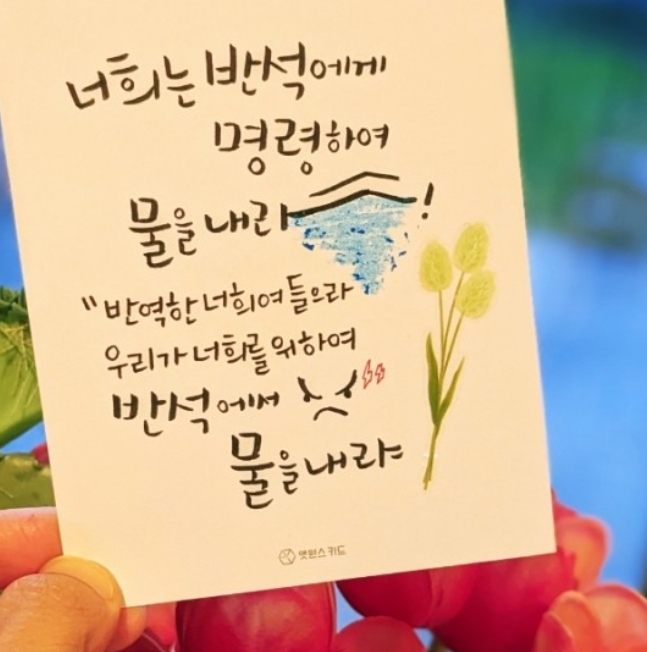 너희는 반석에게
명령하여
물을 내라!
"반역한 너희여 들으라
우리가 너희를 위하여
반석에서
물을 내랴